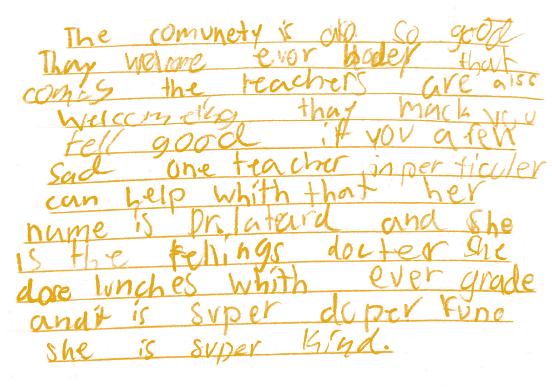 The comunety is also so good
Thay welcome ever boder that
comes the teachers are also
welcomeing thay mack you
fell good if you a feel
sad one teacher in per ticuler
can help whith that her
name is Dr. and she
is the fellings docter she
dose lunches whith ever grade
and it is super duper fune
she is super kind.